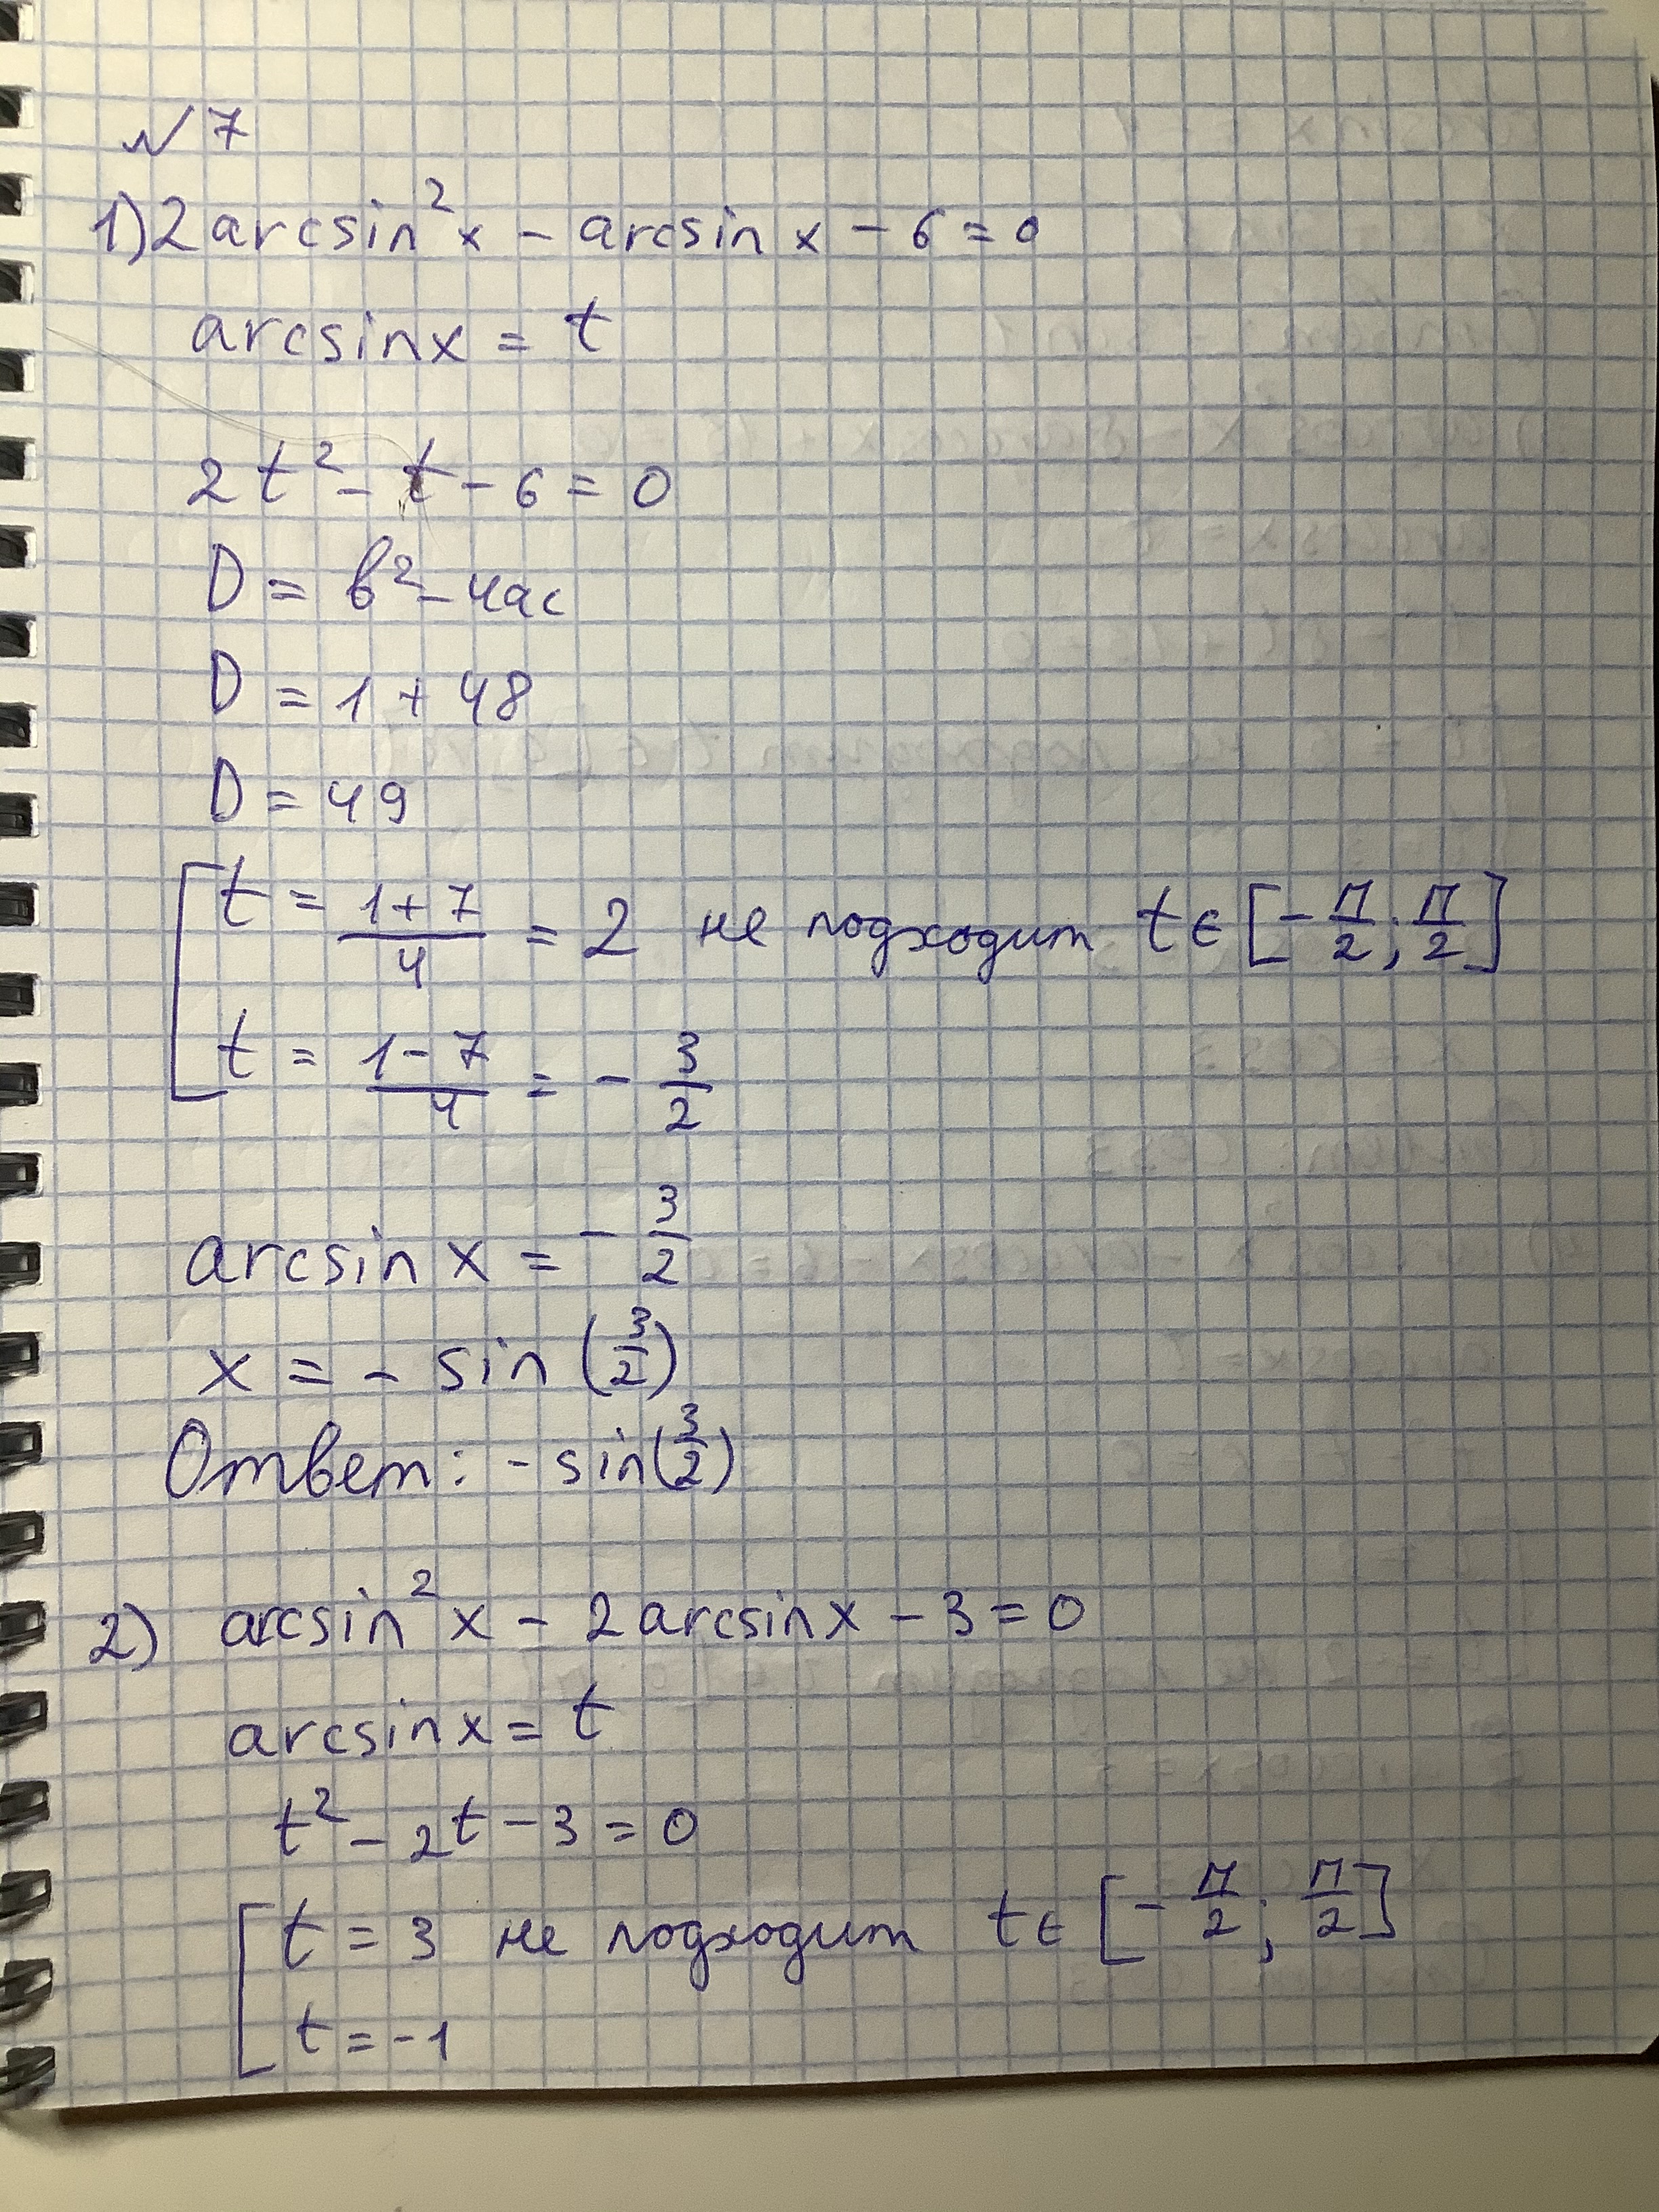 №7
1) 2 arcsin² x - arcsin x - 6 = 0
arcsin x = t
2t² - t - 6 = 0
D = b² - 4ac
D = 1 + 48
D = 49
t = (1+7)/4 = 2 не подходит t ∈ [-π/2; π/2]
t = (1-7)/4 = -3/2
arcsin x = -3/2
x = - sin (3/2)
Ответ: - sin(3/2)
2) arcsin² x - 2 arcsin x - 3 = 0
arcsin x = t
t² - 2t - 3 = 0
t = 3 не подходит t ∈ [-π/2; π/2]
t = -1